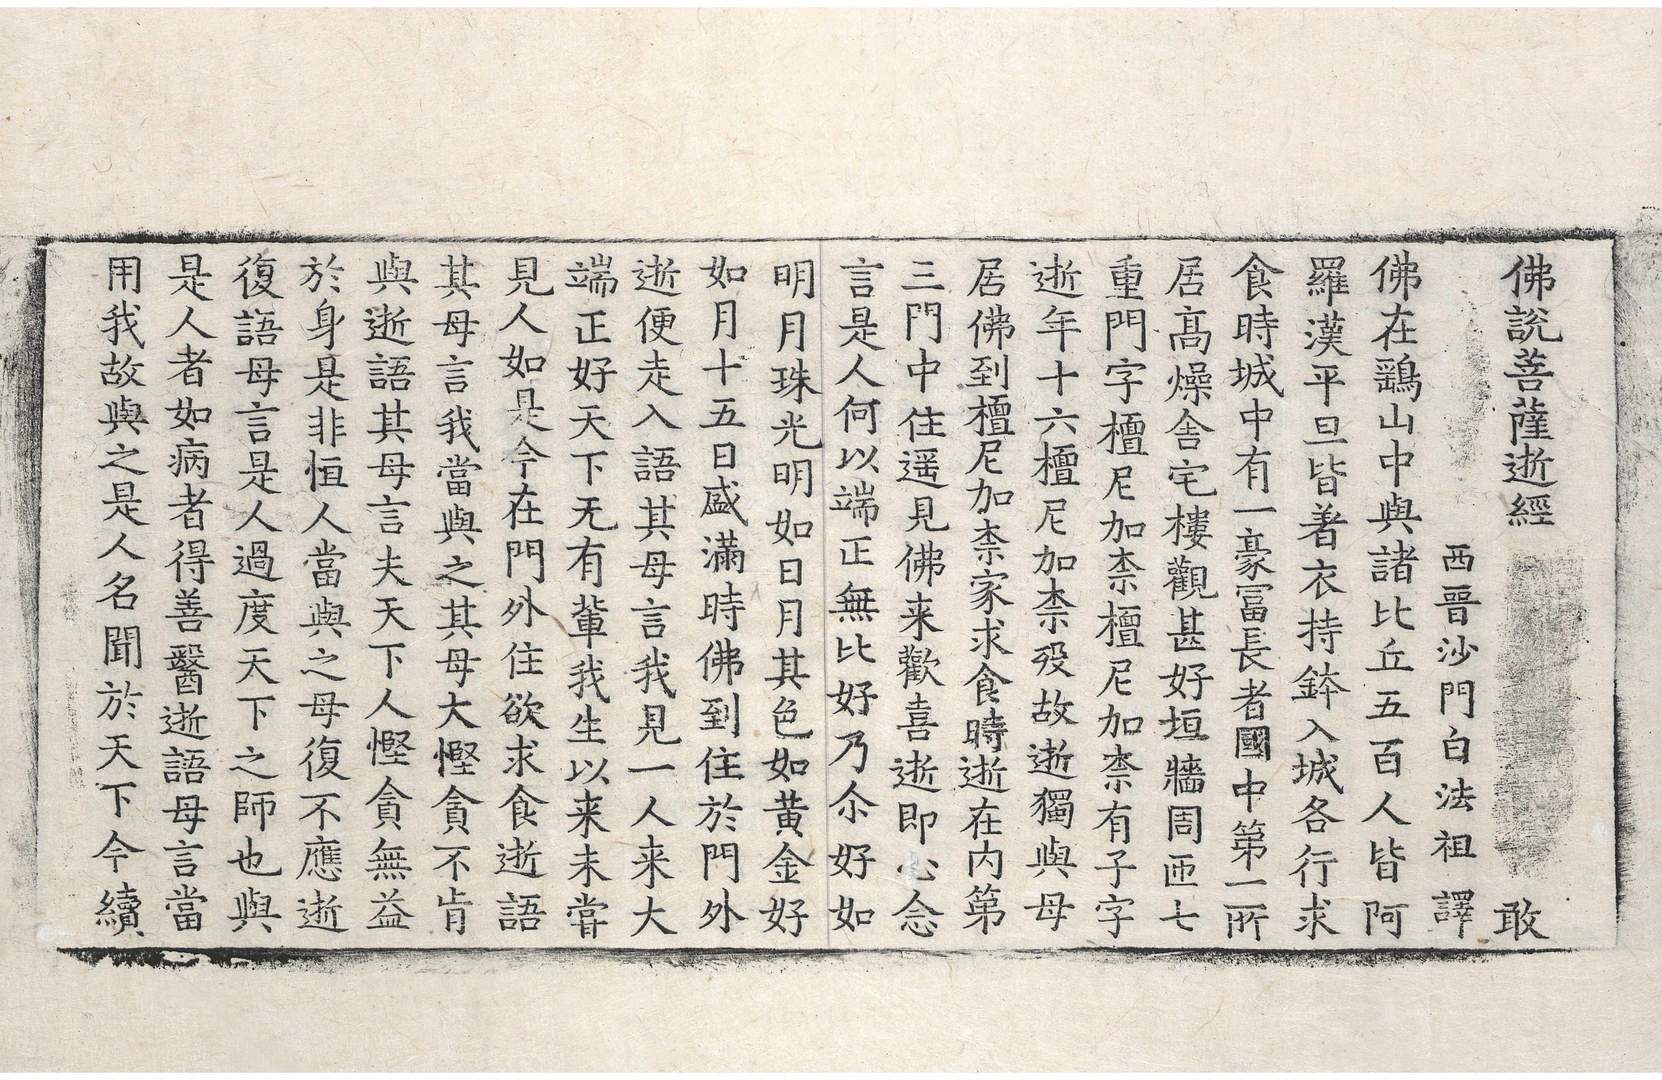 佛說菩薩逝經　敢
西晉沙門白法祖　譯
佛在鷄山中與諸比丘五百人皆阿
羅漢平旦皆著衣持鉢入城各行求
食時城中有一豪冨長者國中第一所
居髙燥舍宅樓觀甚好垣牆周匝七
重門字檀尼加柰檀尼加柰有子字
逝年十六檀尼加柰歿故逝獨與母
居佛到檀尼加柰家求食時逝在内第
三門中住遥見佛来歡喜逝即心念
言是人何以端正無比好乃尒好如
明月珠光明如日月其色如黄金好
如月十五日盛滿時佛到住於門外
逝便走入語其母言我見一人来大
端正好天下无有輩我生以来未甞
見人如是今在門外住欲求食逝語
其母言我當與之其母大慳貪不肯
與逝語其母言夫天下人慳貪無益
於身是非恒人當與之母復不應逝
復語母言是人過度天下之師也與
是人者如病者得善醫逝語母言當
用我故與之是人名聞於天下今續